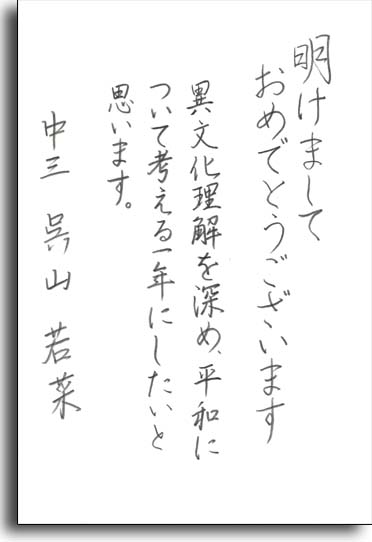 明けまして
おめでとうございます
異文化理解を深め、平和に
ついて考える一年にしたいと
思います。
中三 呉山 若菜